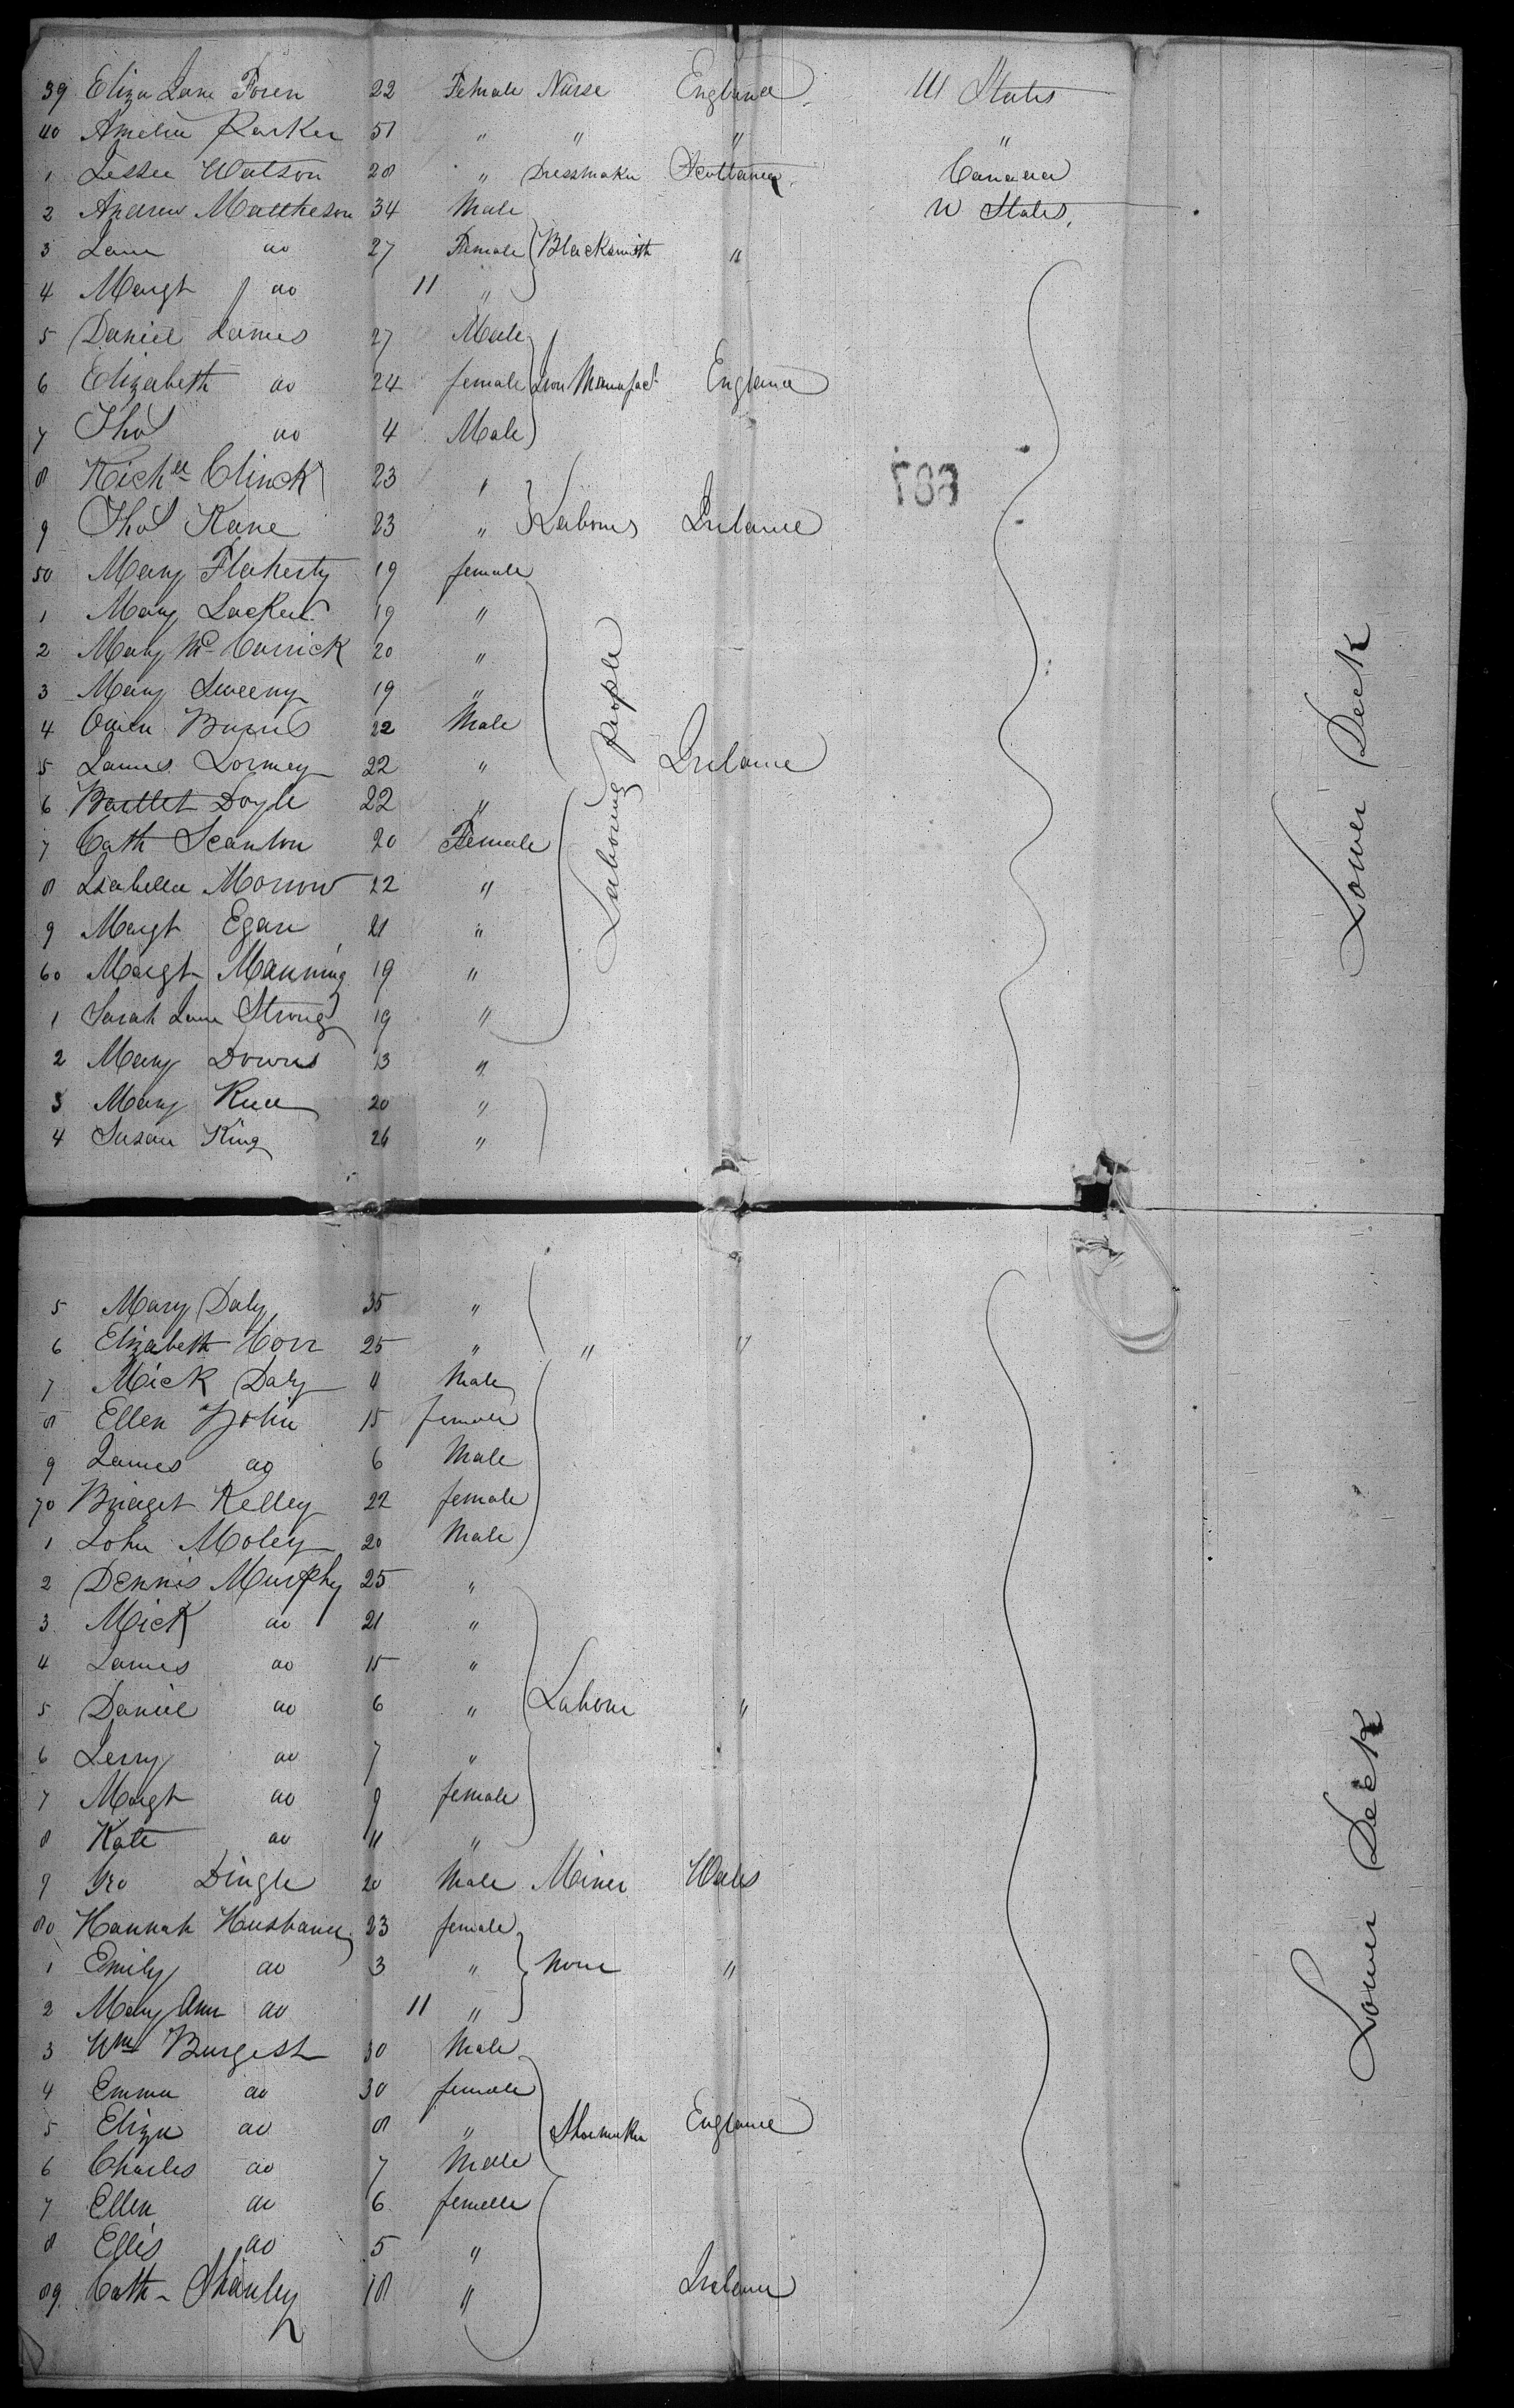 39 Eliza Jane Foren 22 Female Nurse England U States
40 Amelia Parker 51 " " " "
1 Jessie Watson 28 " Dressmaker Scotland Canada
2 Andrew Mattheson 34 Male U States
3 Jane do 27 Female Blacksmith "
4 Margt do 11 "
5 Daniel James 27 Male
6 Elizabeth do 24 female Iron Manufact England
7 Thos do 4 Male
8 Richd Clinck 23 "
9 Thos Kane 23 " Labours Ireland
50 Mary Flaherty 19 female
1 Mary 19 "
2 Mary Mc Carrick 20 "
3 Mary Sweeny 19 "
4 Owen Burns 22 Male
5 James Dormey 22 " Ireland
6 Bartlet Doyle 22 "
7 Cath Scanlon 20 Female
8 Isabella Morrow 22 "
9 Margt Egan 21 "
60 Margt Manning 19 "
1 Sarah Jane Strong 19 "
2 Mary Downs 13 "
3 Mary 20 "
4 Susan King 26 "
Labouring people
Lower Deck
5 Mary Daly 35 "
6 Elizabeth Corr 25 " " "
7 Mick Daly 4 Male
8 Ellen 15 female
9 James do 6 Male
70 Bridget Kelley 22 female
1 John Moley 20 Male
2 Dennis Murphy 25 "
3 Mick do 21 "
4 James do 15 "
5 Daniel do 6 " Labour "
6 Jerry do 7 "
7 Margt do 9 female
8 Kate do 11 "
9 Geo Dingle 20 Male Miner Wales
80 Hannah Husband 23 female
1 Emily do 3 " None "
2 Mary Ann do 11 "
3 Wm Burgess 30 Male
4 Emma do 30 female
5 Eliza do 8 " Shoemaker England
6 Charles do 7 Male
7 Ellen do 6 female
8 Ellis do 5 "
89 Cath Shanley 18 " Ireland
Lower Deck